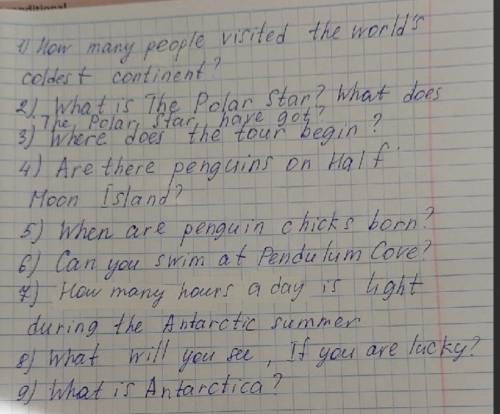 conditional
1) How many people visited the world's
coldest continent?
2) What is The Polar Star? What does
The Polar Star have got?
3) Where does the tour begin?
4) Are there penguins on Half
Moon Island?
5) When are penguin chicks born?
6) Can you swim at Pendulum Cove?
7) How many hours a day is light
during the Antarctic summer
8) What will you see, If you are lucky?
9) What is Antarctica?